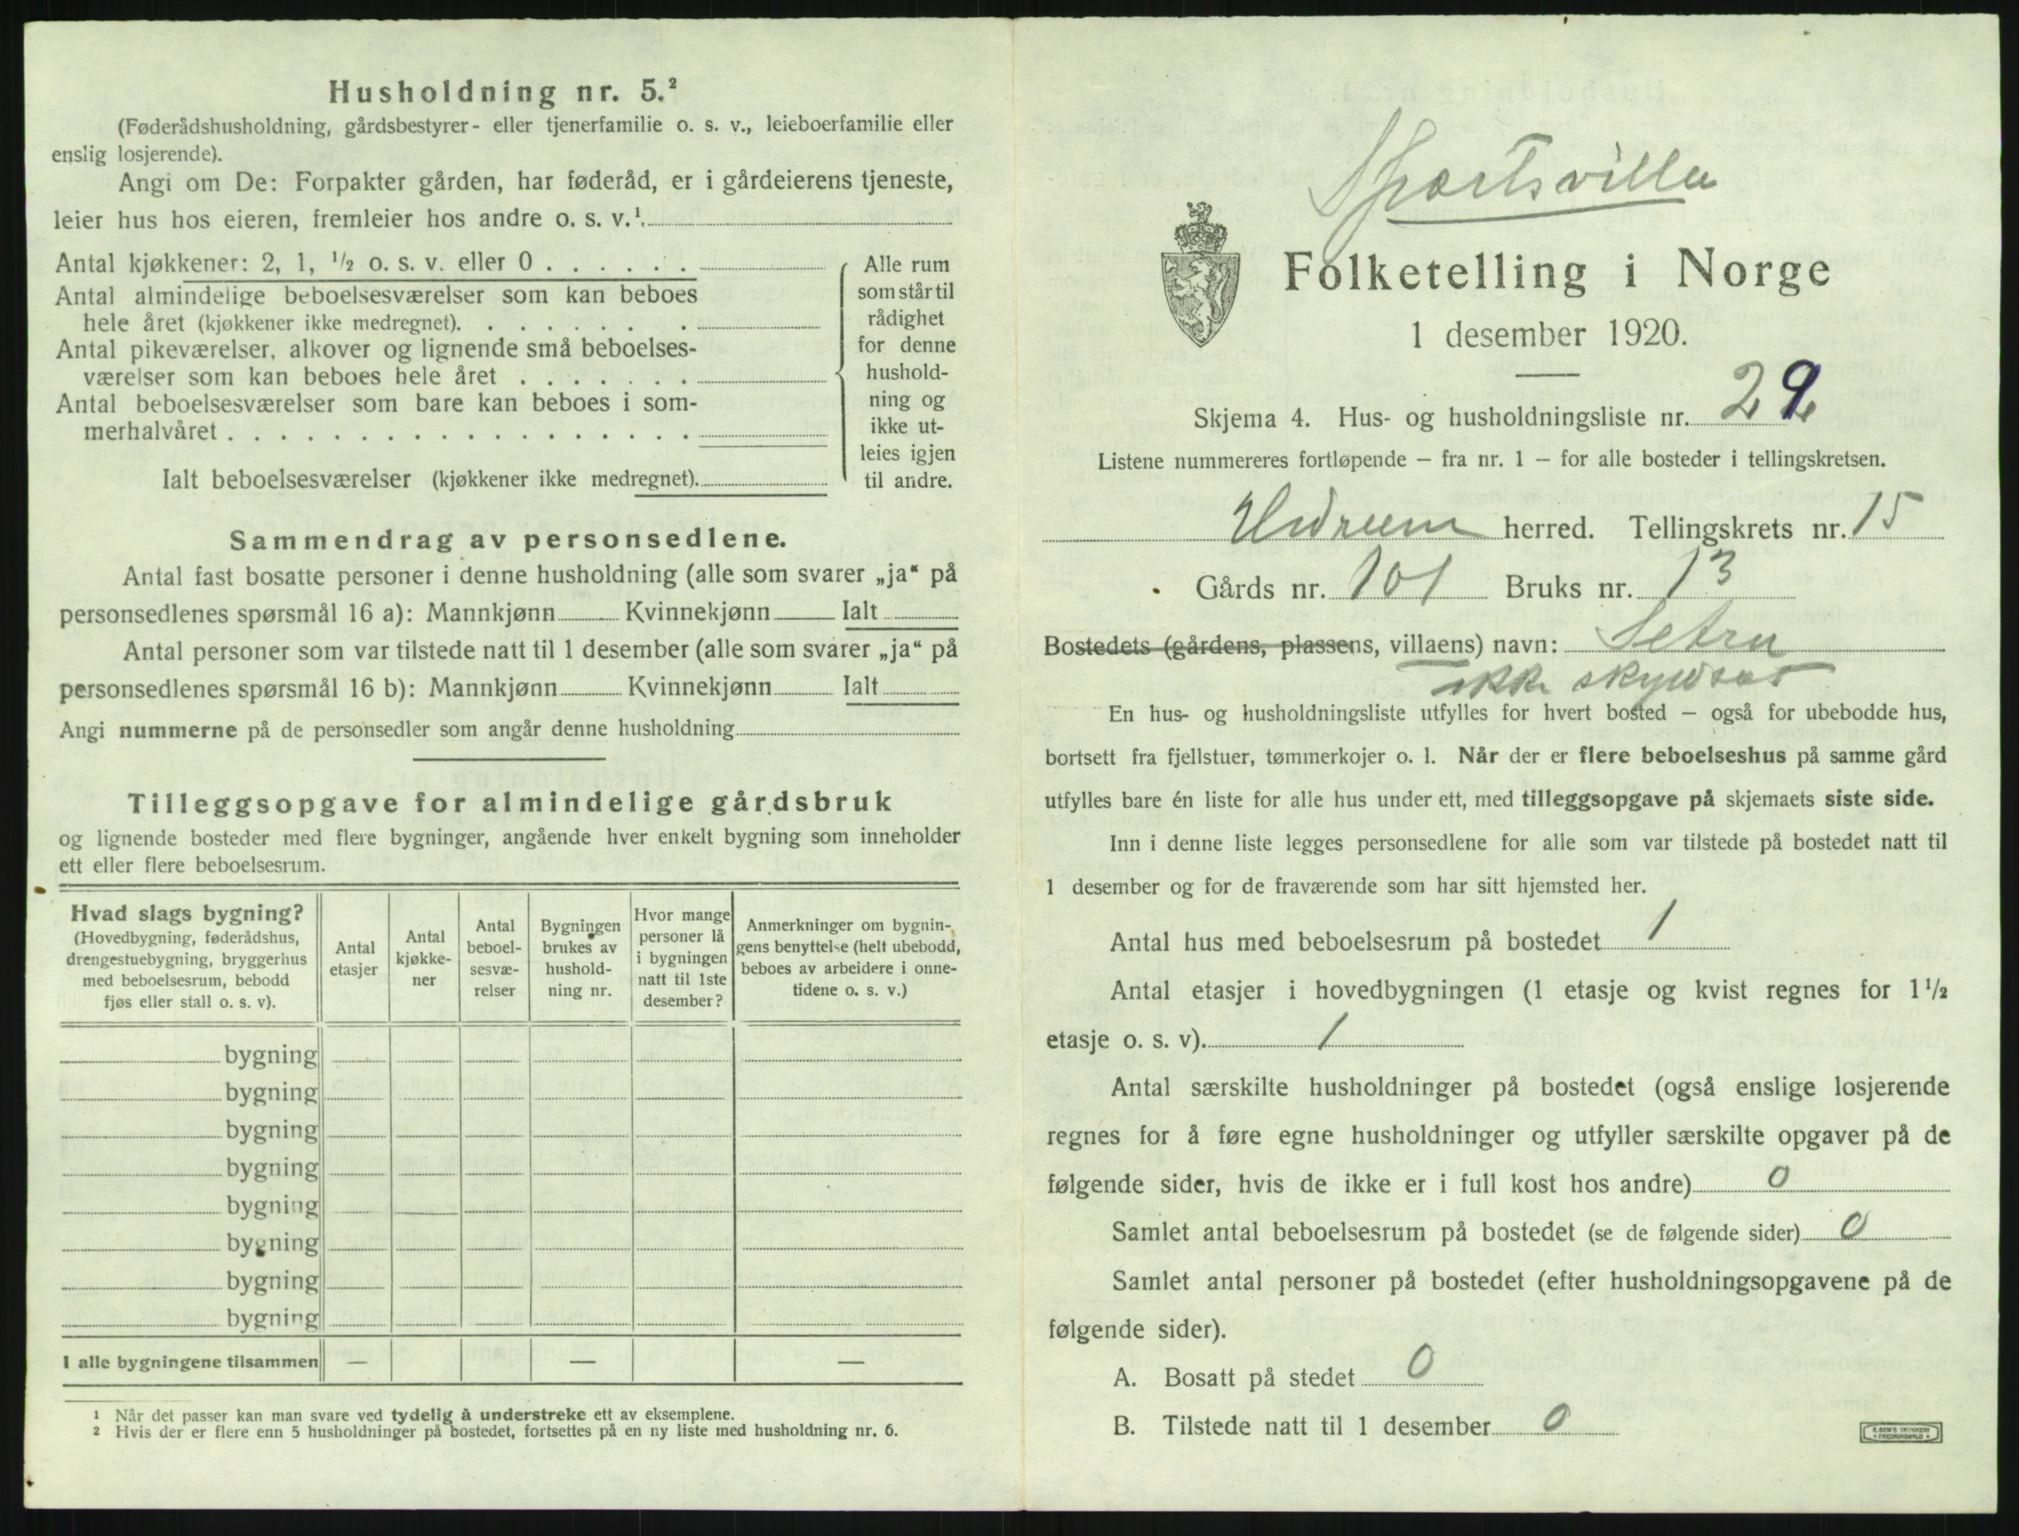 Husholdning nr. 5.²
(Føderådshusholdning, gårdsbestyrer- eller tjenerfamilie o. s. v., leieboerfamilie eller
enslig losjerende).
Angi om De: Forpakter gården, har føderåd, er i gårdeierens tjeneste,
leier hus hos eieren, fremleier hos andre o. s. v.¹
Antal kjøkkener: 2, 1, ½ o. s. v. eller 0 . . . . . .
Antal almindelige beboelsesværelser som kan beboes
hele året (kjøkkener ikke medregnet). . . . . . . .
Antal pikeværelser, alkover og lignende små beboelses-
værelser som kan beboes hele året . . . . . . .
Antal beboelsesværelser som bare kan beboes i som-
merhalvåret . . . . . . . . . . . . . . . . . .
Ialt beboelsesværelser (kjøkkener ikke medregnet).
Alle rum
som står til
rådighet
for denne
hushold-
ning og
ikke ut-
leies igjen
til andre.
Sammendrag av personsedlene.
Antal fast bosatte personer i denne husholdning (alle som svarer „ja“ på
personsedlenes spørsmål 16 a): Mannkjønn Kvinnekjønn Ialt
Antal personer som var tilstede natt til 1 desember (alle som svarer „ja“ på
personsedlenes spørsmål 16 b): Mannkjønn Kvinnekjønn Ialt
Angi nummerne på de personsedler som angår denne husholdning
Tilleggsopgave for almindelige gårdsbruk
og lignende bosteder med flere bygninger, angående hver enkelt bygning som inneholder
ett eller flere beboelsesrum.
Hvad slags bygning?
(Hovedbygning, føderådshus,
drengestuebygning, bryggerhus
med beboelsesrum, bebodd
fjøs eller stall o. s. v).
Antal
etasjer
Antal
kjøkke-
ner
Antal
beboel-
sesvæ-
relser
Bygningen
brukes av
hushold-
ning nr.
Hvor mange
personer lå
i bygningen
natt til 1ste
desember?
Anmerkninger om bygnin-
gens benyttelse (helt ubebodd,
beboes av arbeidere i onne-
tidene o. s. v.)
bygning
bygning
bygning
bygning
bygning
bygning
bygning
bygning
I alle bygningene tilsammen — — —
¹ Når det passer kan man svare ved tydelig å understreke ett av eksemplene.
² Hvis der er flere enn 5 husholdninger på bostedet, fortsettes på en ny liste med husholdning nr. 6.
Sportsvilla
Folketelling i Norge
1 desember 1920.
Skjema 4. Hus- og husholdningsliste nr. 29
Listene nummereres fortløpende – fra nr. 1 – for alle bosteder i tellingskretsen.
Hedrum herred. Tellingskrets nr. 15
Gårds nr. 101 Bruks nr. 13
Bostedets (gårdens, plassens, villaens) navn: Setra
ikke skyldsat
En hus- og husholdningsliste utfylles for hvert bosted – også for ubebodde hus,
bortsett fra fjellstuer, tømmerkojer o. l. Når der er flere beboelseshus på samme gård
utfylles bare én liste for alle hus under ett, med tilleggsopgave på skjemaets siste side.
Inn i denne liste legges personsedlene for alle som var tilstede på bostedet natt til
1 desember og for de fraværende som har sitt hjemsted her.
Antal hus med beboelsesrum på bostedet 1
Antal etasjer i hovedbygningen (1 etasje og kvist regnes for 1½
etasje o. s. v). 1
Antal særskilte husholdninger på bostedet (også enslige losjerende
regnes for å føre egne husholdninger og utfyller særskilte opgaver på de
følgende sider, hvis de ikke er i full kost hos andre) 0
Samlet antal beboelsesrum på bostedet (se de følgende sider) 0
Samlet antal personer på bostedet (efter husholdningsopgavene på de
følgende sider).
A. Bosatt på stedet 0
B. Tilstede natt til 1 desember 0
E. SEM'S TRYKKERI
FREDRIKSHALD